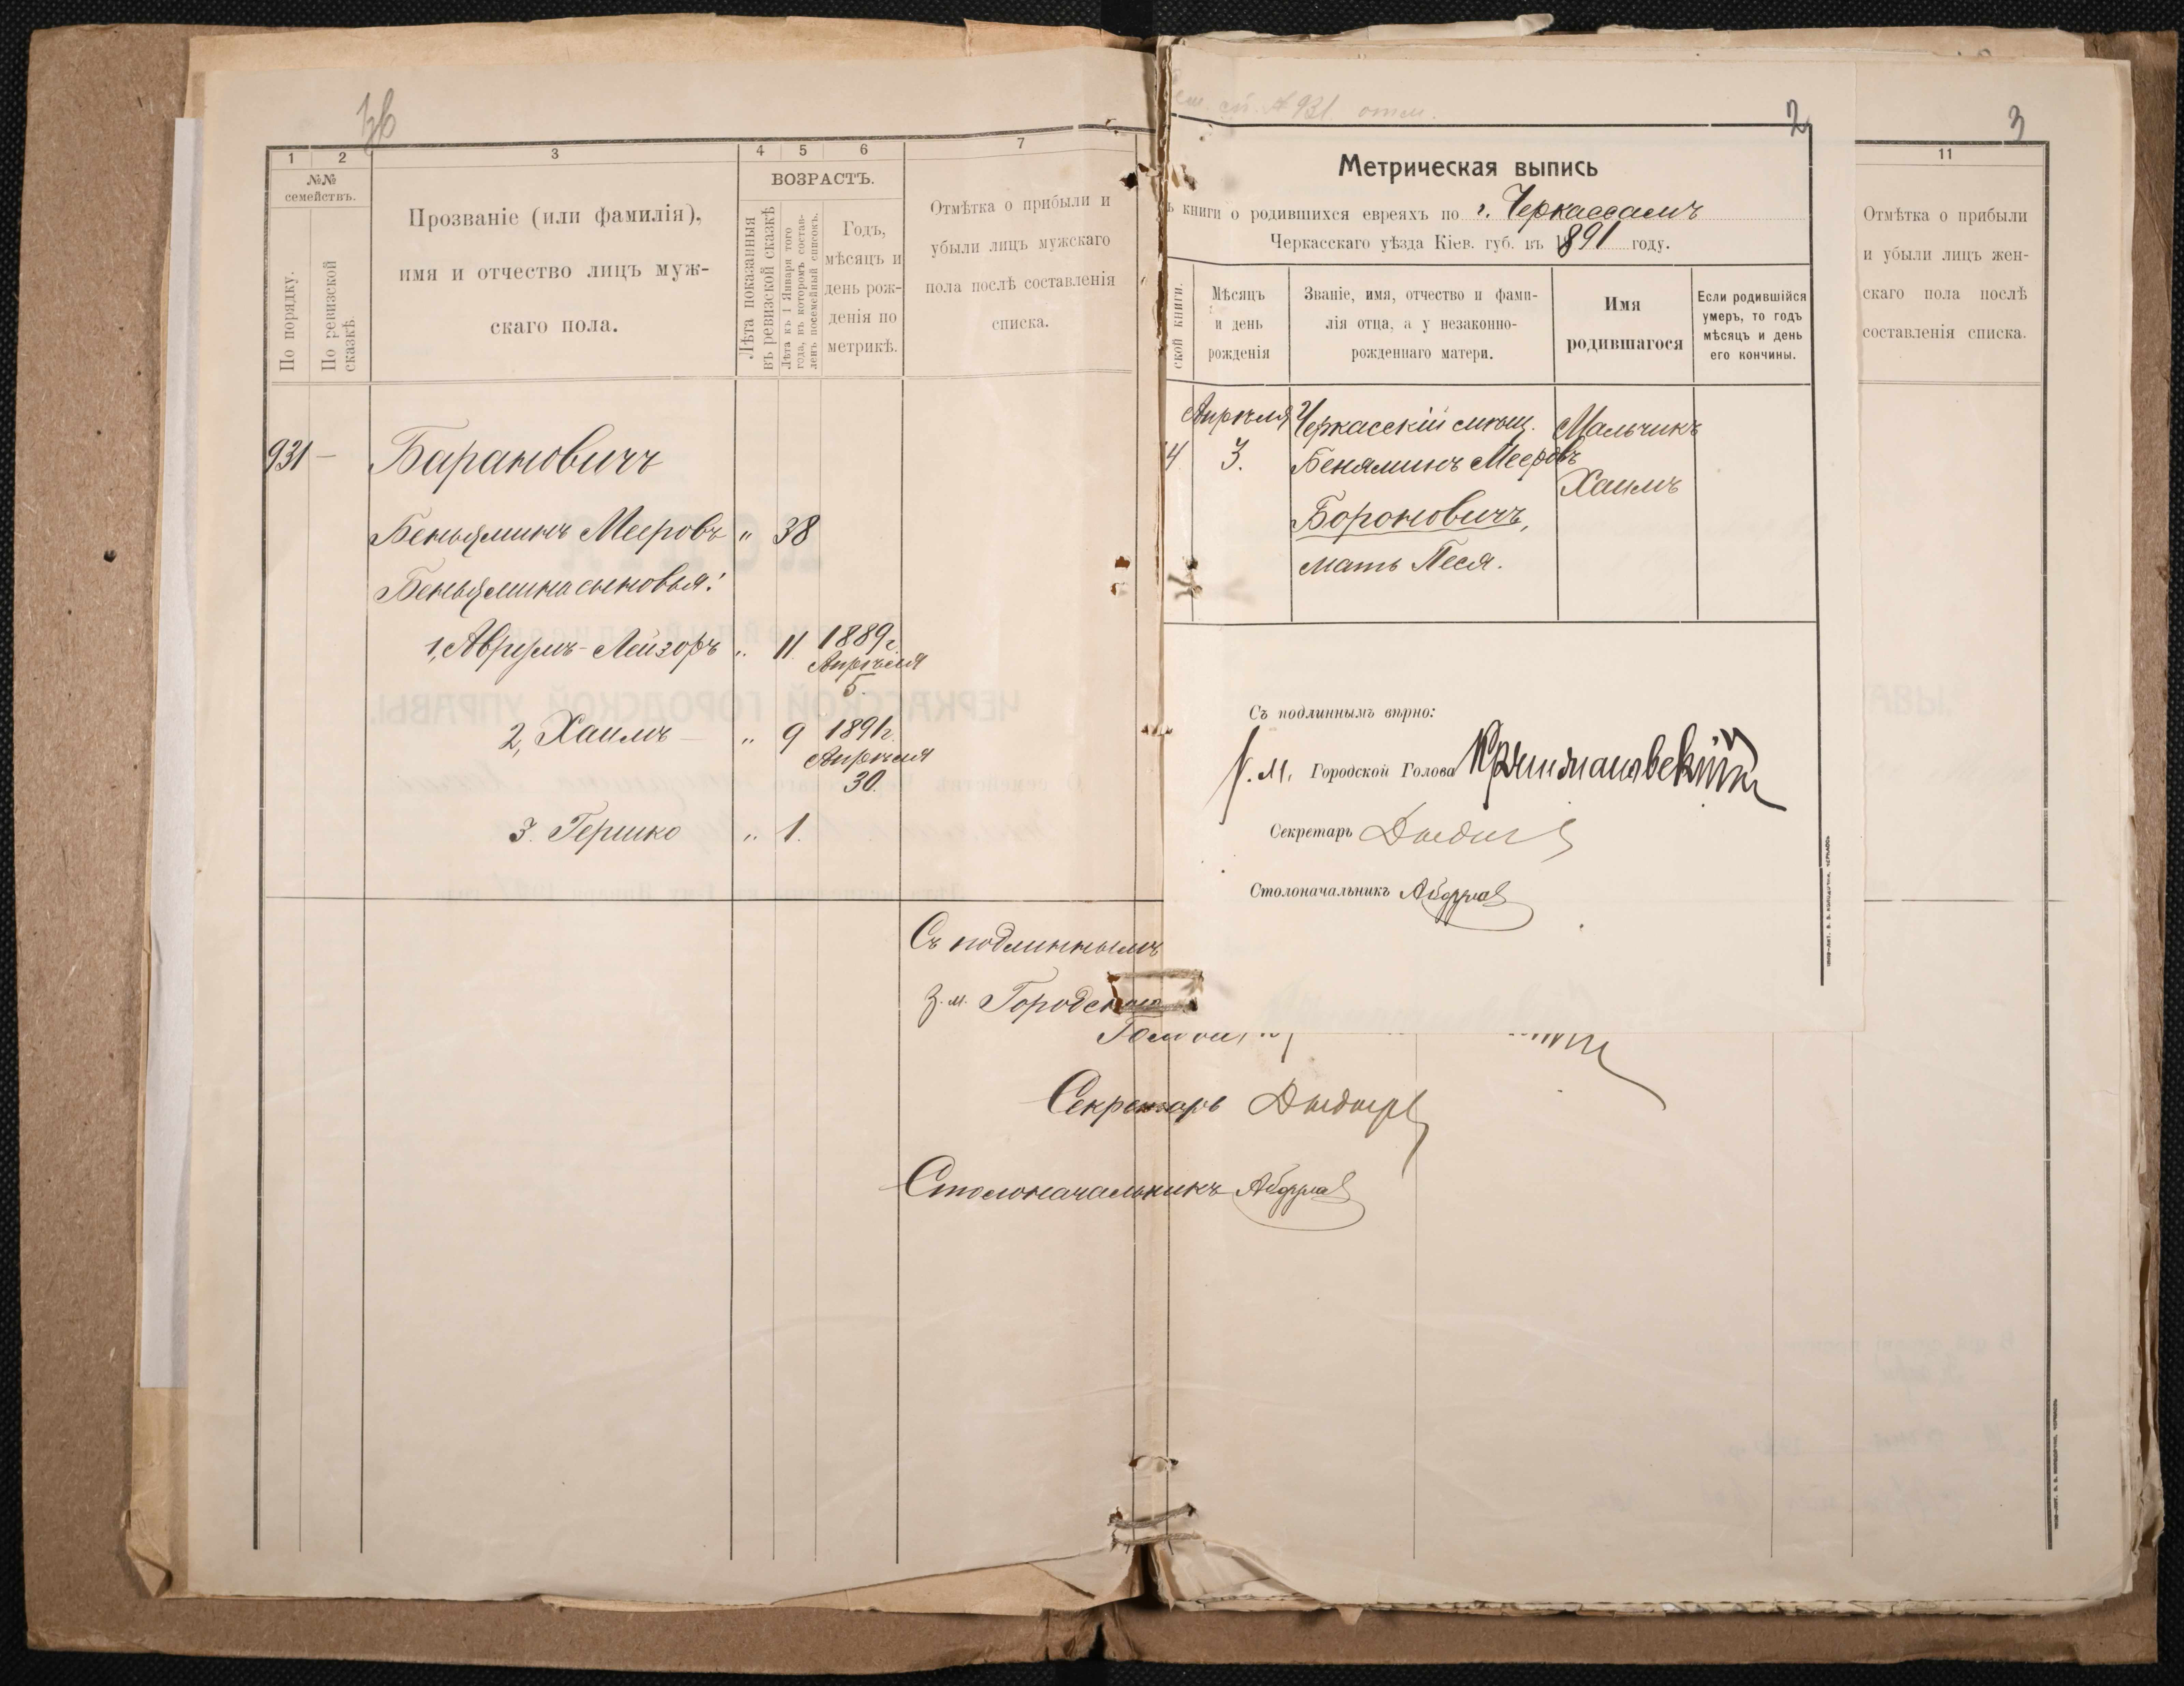 1 2 3 4 5 6 7
№№
семействъ.
По порядку.
По ревизской
сказкѣ.
Прозваніе (или фамилія),
имя и отчество лицъ муж-
скаго пола.
ВОЗРАСТЪ.
Лѣта показанныя
въ ревизской сказкѣ
Лѣта къ 1 Января того
года, въ которомъ состав-
ленъ посемейный списокъ.
Годъ,
мѣсяцъ и
день рож-
денія по
метрикѣ.
Отмѣтка о прибыли и
убыли лицъ мужскаго
пола послѣ составленія
списка.
931 — Барановичъ
Беньяминъ Мееровъ " 38
Беньямина сыновья:
1, Аврумъ-Лейзоръ " 11 1889 г.
Апрѣля
5.
2, Хаимъ — " 9 1891 г.
Апрѣля
30.
3. Гершко " 1.
Съ подлиннымъ
З. м. Городского
Секретарь
Столоначальникъ
№ 931
2
Метрическая выпись
книги о родившихся евреяхъ по г. Черкассамъ
Черкасскаго уѣзда Кіев. губ. въ 1891 году.
ской книги.
Мѣсяцъ
и день
рожденія
Званіе, имя, отчество и фами-
лія отца, а у незаконно-
рожденнаго матери.
Имя
родившагося
Если родившійся
умеръ, то годъ
мѣсяцъ и день
его кончины.
Апрѣля Черкасскій мѣщ. Мальчикъ
4 3. Беняминъ Мееровъ
Хаимъ
Бороновичъ,
мать Песя.
Съ подлиннымъ вѣрно:
З. м. Городской Голова
Секретарь
Столоначальникъ
3
11
Отмѣтка о прибыли
и убыли лицъ жен-
скаго пола послѣ
составленія списка.